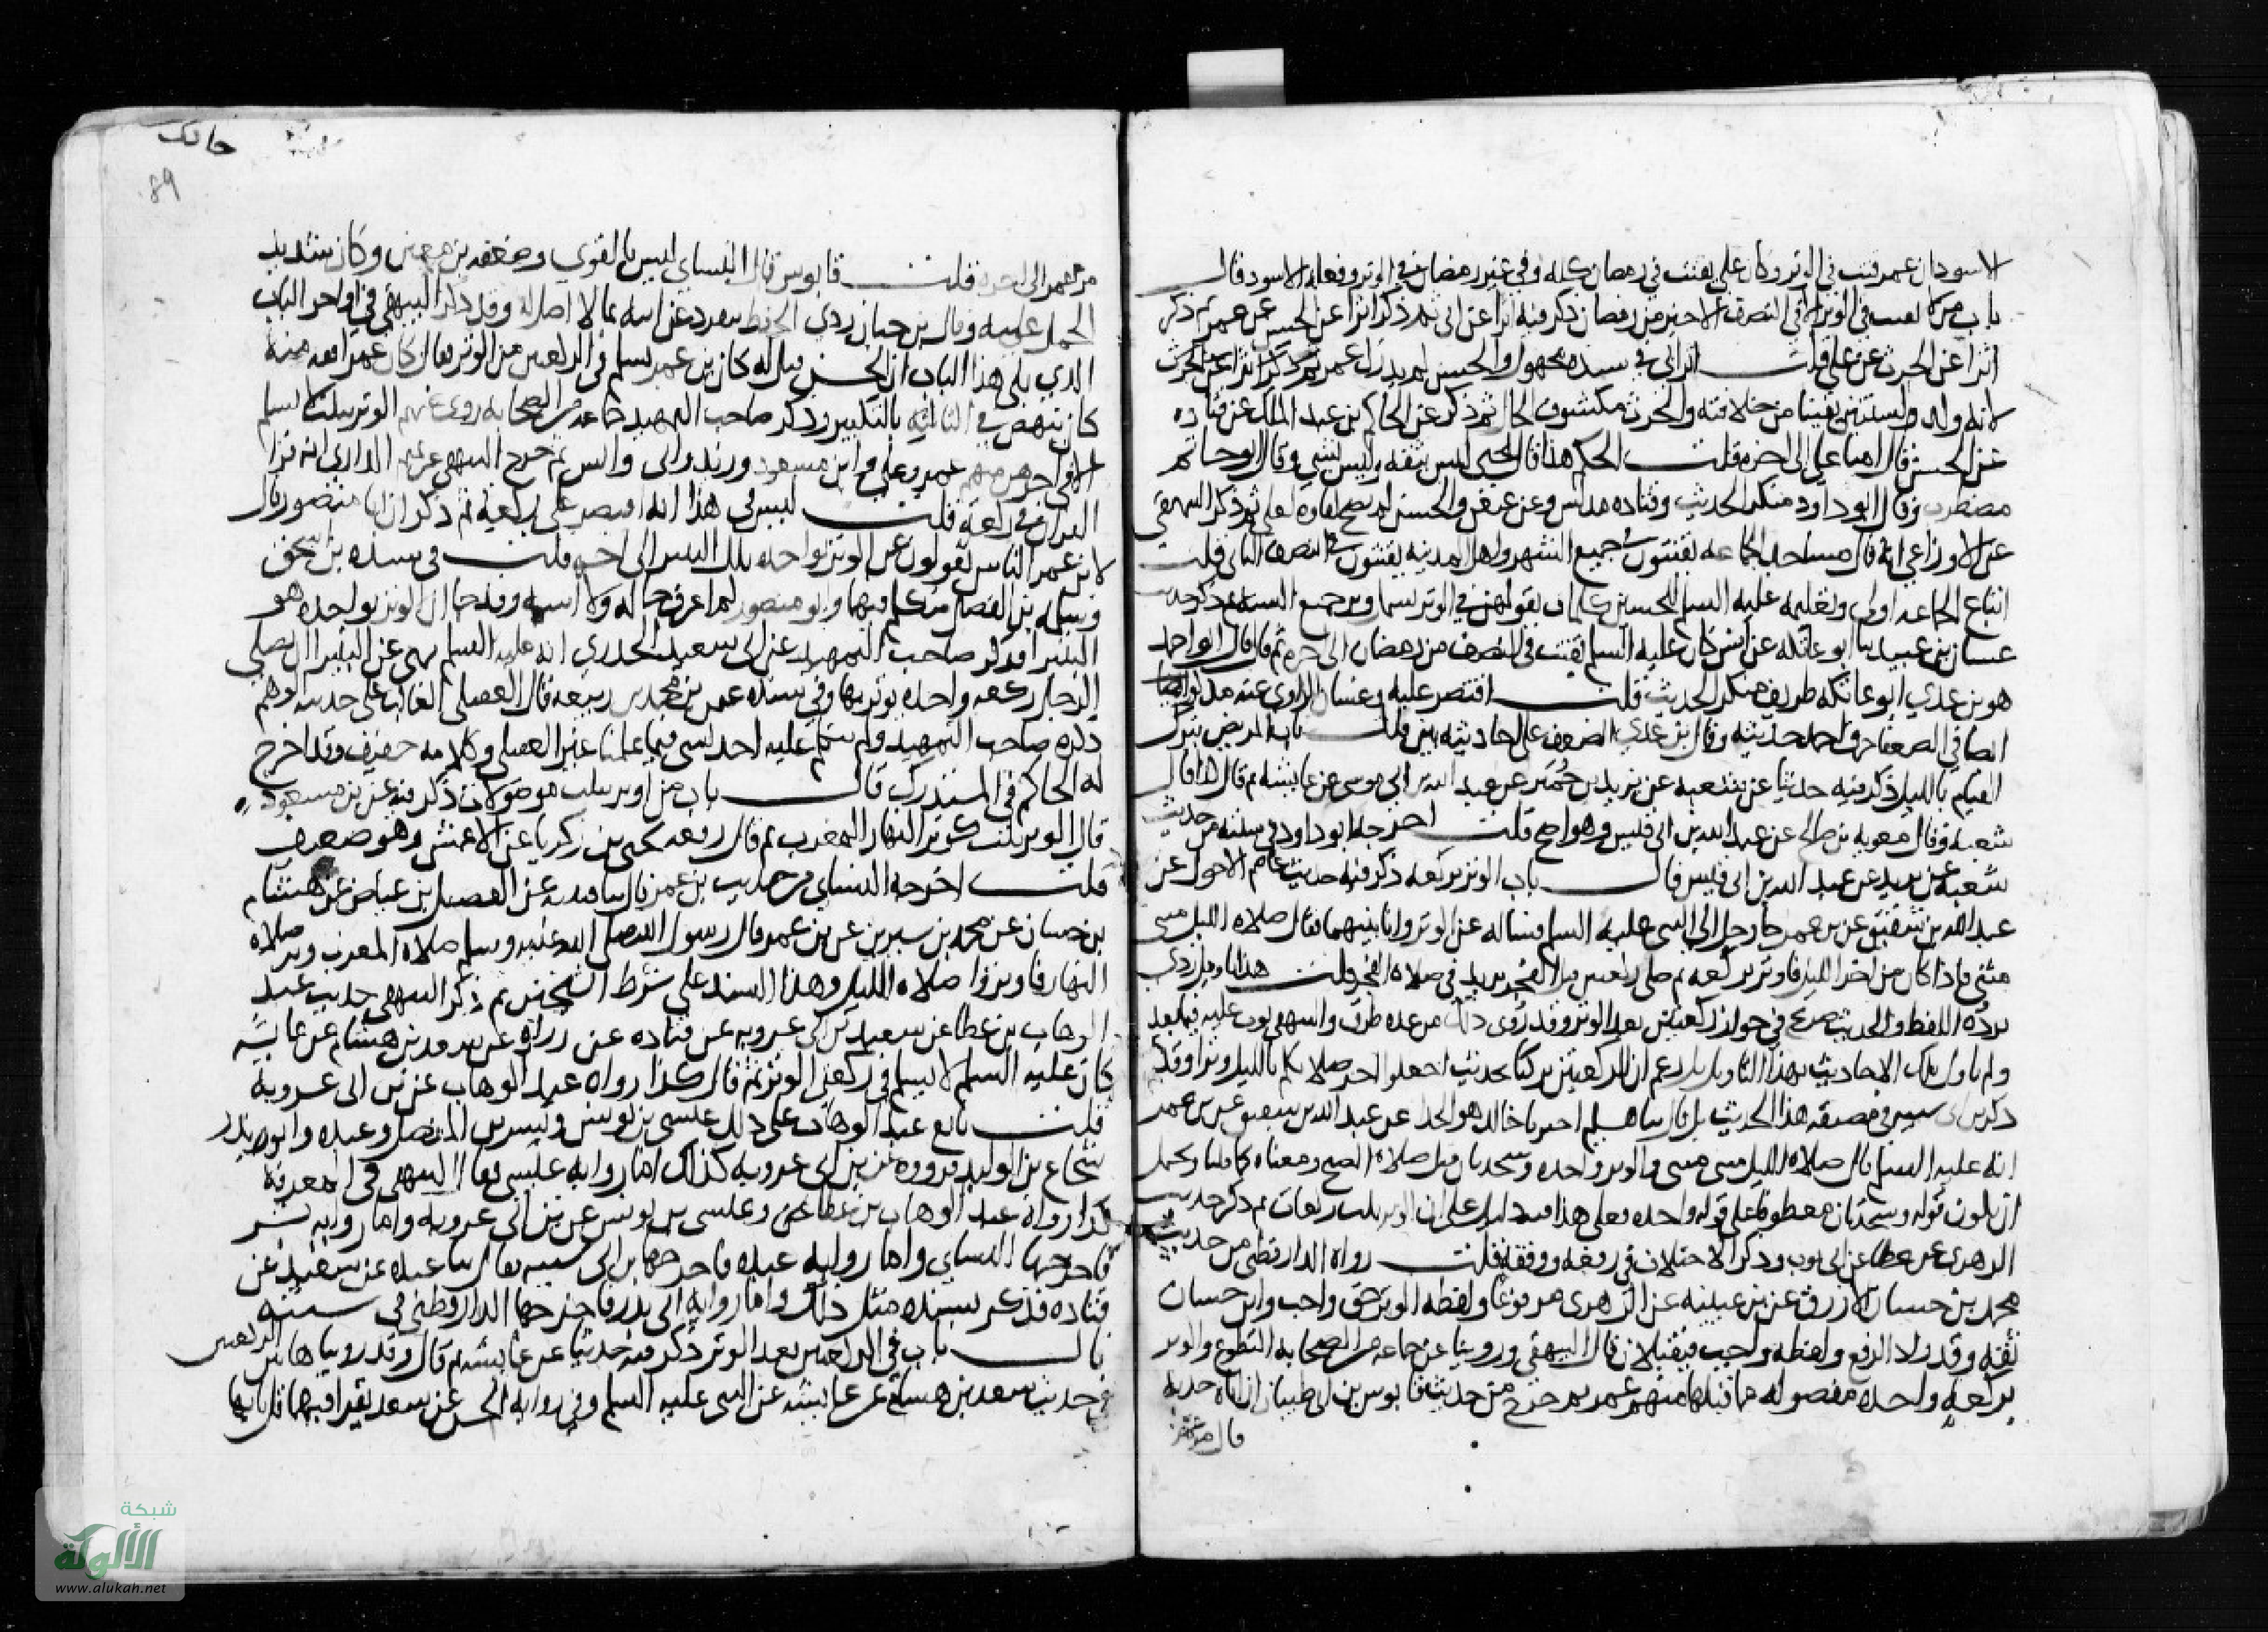 الاسود ان عمر قنت في الوتر وكان علي يقنت في رمضان كله وفي غير رمضان في الوتر وفعله الاسود قال
باب من لا يقنت في الوتر الا في النصف الاخير من رمضان ذكر فيه اثرا عن ابي ثم ذكر اثرا عن الحسن عن عمر ثم ذكر
اثرا عن الحرث عن علي قلت اثر ابي في سنده مجهول والحسن لم يدرك عمر ثم ذكر اثرا عن الحرث
لانه ولد لسنتين بقيتا من خلافته والحرث مكشوف الحال ثم ذكر عن الحكم بن عبد الملك عن قتاده
عن الحسن قال امنا علي الى اخره قلت الحكم هذا قال يحيى ليس بثقه وليس بشي وقال ابو حاتم
مضطرب وقال ابو داود منكر الحديث وقتاده مدلس وعنعن والحسن لم يصح لقاوه لعلي ثم ذكر البيهقي
عن الاوزاعي انه قال مساجد الجماعه يقنتون جميع الشهر واهل المدينه يقنتون في النصف الثاني قلت
اتباع الجماعه اولى وتعليمه عليه السلم للحسن كلمات يقولهن في الوتر جميع السنه ثم ذكر حديث
غسان بن عبيد ثنا ابو عاتكه عن انس كان عليه السلم يقنت في النصف من رمضان الى اخره ثم قال قال ابو احمد
هو بن عدي ابو عاتكه طريف منكر الحديث قلت اقتصر عليه وغسان الراوي عنه مذكور ايضا
ايضا في الضعفا خرق احمد حديثه وقال بن عدي الضعف على احاديثه بين قلت باب المريض يترك
القيام بالليل ذكر فيه حديثا عن شعبه عن يزيد بن خمير عن عبد الله بن ابي موسى عن عايشه ثم قال كذا قال
شعبه وقال معويه بن صالح عن عبد الله بن ابي قيس وهو اصح قلت اخرجه ابو داود في سننه من حديث
شعبه عن يزيد عن عبد الله بن ابي قيس قال باب الوتر بركعه ذكر فيه حديث عاصم الاحول عن
عبد الله بن شقيق عن بن عمر جا رجل الى النبي عليه السلم فساله عن الوتر وانا بينهما فقال صلاه الليل مثنى
مثنى فاذا كان من اخر الليل فاوتر بركعه ثم صلى ركعتين قبل الفجر يريد في صلاه الفجر قلت هذا تاويل ردي
يرده اللفظ والحديث صريح في جواز ركعتين بعد الوتر وقد روي ذلك من عده طرق والبيهقي بوب عليه فيما بعد
ولم ياول تلك الاحاديث بهذا التاويل بل زعم ان الركعتين تركتا بحديث اجعلوا اخر صلاتكم بالليل وترا وقد
ذكر بن ابي شيبه في مصنفه هذا الحديث بل قال ثنا هشيم اخبرنا خالد هو الحذا عن عبد الله بن شقيق عن بن عمر
انه عليه السلم قال صلاه الليل مثنى مثنى والوتر واحده وسجدتان قبل صلاه الصبح ومعناه كما قلنا ويحتمل
ان يكون قوله وسجدتان معطوفا على قوله واحده فعلى هذا فيه دليل على ان الوتر ثلث ركعات ثم ذكر حديث
الزهري عن عطا عن ابي ايوب وذكر الاختلاف في رفعه ووقفه قلت رواه الدارقطني من حديث
محمد بن حسان الازرق عن بن عيينه عن الزهري مرفوعا ولفظه الوتر حق واجب وابن حسان
ثقه وقد زاد الرفع ولفظه واجب فيقبلان قال البيهقي وروينا عن جماعه من الصحابه التطوع والوتر
بركعه واحده مفصوله مما قبلها منهم عمر ثم خرج من حديث قابوس بن ابي ظبيان ان اباه حدثه
قال مر عمر
حاتك
89
مر عمر الى اخره قلت قابوس قال النساي ليس بالقوي وضعفه بن معين وكان شديد
الحمل عليه وقال بن حبان ردي الحفظ ينفرد عن ابيه بما لا اصل له وقد ذكر البيهقي في اواخر الباب
الذي يلي هذا الباب ان الحسن قيل له كان بن عمر يسلم في الركعتين من الوتر فقال كان عمر افقه منه
كان ينهض في الثانيه بالتكبير وذكر صاحب التمهيد جماعه من الصحابه روي عنهم الوتر بثلث لا يسلم
الا في اخرهن منهم عمر وعلي وابن مسعود وزيد وابي وانس ثم خرج البيهقي عن تميم الداري انه قرا
القران في ركعه قلت ليس في هذا انه اقتصر على ركعه ثم ذكر ان ابا منصور قال
لابن عمر الناس يقولون عن الوتر بواحده تلك البتيرا الى اخره قلت في سنده بن اسحق
وسلمه بن الفضل متكلم فيهما وابو منصور لم اعرف حاله ولا اسمه وقد جا ان الوتر بواحده هو
البتيرا فذكر صاحب التمهيد عن ابي سعيد الخدري انه عليه السلم نهى عن البتيرا ان يصلي
الرجل ركعه واحده يوتر بها وفي سنده عثمن بن محمد بن ربيعه قال العقيلي الغالب على حديثه الوهم
ذكره صاحب التمهيد ولم يتكلم عليه احد بشي فيما علمنا غير العقيلي وكلامه خفيف وقد اخرج
له الحاكم في المستدرك قال باب من اوتر بثلث موصولات ذكر فيه عن بن مسعود
قال الوتر ثلث كوتر النهار المغرب ثم قال رفعه يحيى بن زكريا عن الاعمش وهو ضعيف
قلت اخرجه النساي من حديث بن عمر قال ثنا قتيبه عن الفضيل بن عياض عن هشام
بن حسان عن محمد بن سيرين عن بن عمر قال رسول الله صلى الله عليه وسلم صلاه المغرب وتر صلاه
النهار فاوتروا صلاه الليل وهذا السند على شرط الشيخين ثم ذكر البيهقي حديث عبد
الوهاب بن عطا عن سعيد بن ابي عروبه عن قتاده عن زراره عن سعد بن هشام عن عايشه
كان عليه السلم لا يسلم في ركعتي الوتر ثم قال كذا رواه عبد الوهاب عن بن ابي عروبه
قلت تابع عبد الوهاب على ذلك عيسى بن يونس وبشر بن المفضل وعبده وابو بدر
شجاع بن الوليد فرووه عن بن ابي عروبه كذلك اما روايه عيسى فقال البيهقي في المعرفه
كذا رواه عبد الوهاب بن عطا وعيسى بن يونس عن بن ابي عروبه واما روايه بشر
فاخرجها النساي واما روايه عبده فاخرجها بن ابي شيبه فقال ثنا عبده عن سعيد عن
قتاده فذكر بسنده مثل ذلك واما روايه ابي بدر فاخرجها الدارقطني في سننه
قال باب في الركعتين بعد الوتر ذكر فيه حديثا عن عايشه ثم قال وقد روينا هاتين الركعتين
في حديث سعد بن هشام عن عايشه عن النبي عليه السلم وفي روايه الحسن عن سعد يقرا فيهما قل يايها
شبكة
الألوكة
www.alukah.net